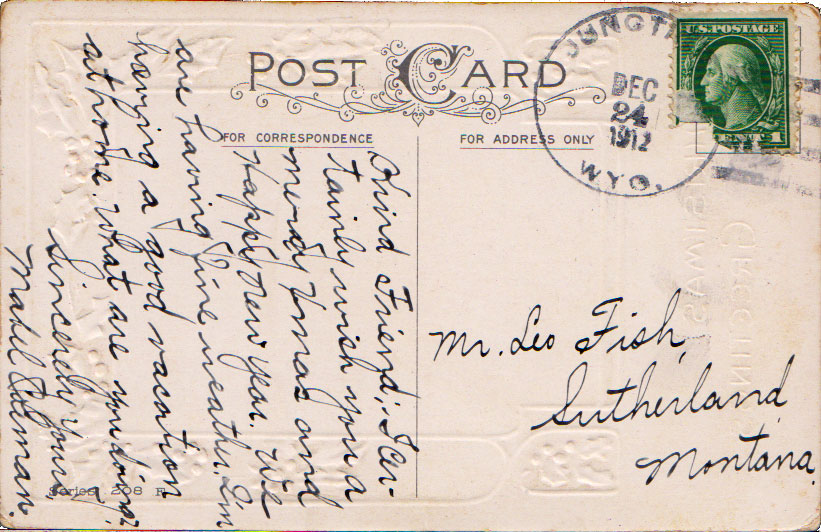 POST CARD
FOR CORRESPONDENCE
FOR ADDRESS ONLY
U.S. POSTAGE
DEC
24
1912
WYO.
Kind Friend; I cer-
tainly wish you a
merry Xmas and
Happy New Year. We
are having fine weather. I'm
having a good vacation
at home. What are you doing?
Sincerely Yours,
Mabel
Mr. Leo Fish,
Sutherland,
Montana.
Series 208 F